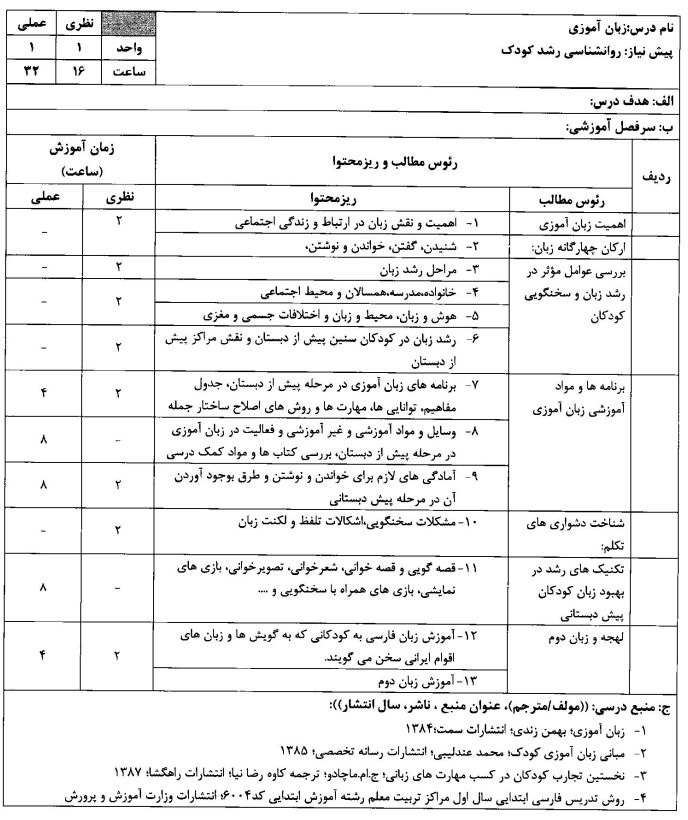 نام درس:زبان آموزی
پیش نیاز: روانشناسی رشد کودک
نظری عملی
واحد ۱ ۱
ساعت ۱۶ ۳۲
الف: هدف درس:
ب: سرفصل آموزشی:
ردیف رئوس مطالب و ریزمحتوا زمان آموزش
(ساعت)
رئوس مطالب ریزمحتوا نظری عملی
اهمیت زبان آموزی ۱- اهمیت و نقش زبان در ارتباط و زندگی اجتماعی ۲ -
ارکان چهارگانه زبان: ۲- شنیدن، گفتن، خواندن و نوشتن،
بررسی عوامل مؤثر در ۳- مراحل رشد زبان ۲ -
رشد زبان و سخنگویی ۴- خانواده،مدرسه،همسالان و محیط اجتماعی ۲ -
کودکان ۵- هوش و زبان، محیط و زبان و اختلافات جسمی و مغزی
۶- رشد زبان در کودکان سنین پیش از دبستان و نقش مراکز پیش ۲ -
از دبستان
برنامه ها و مواد ۷- برنامه های زبان آموزی در مرحله پیش از دبستان، جدول ۲ ۴
آموزشی زبان آموزی مفاهیم، توانایی ها، مهارت ها و روش های اصلاح ساختار جمله
۸- وسایل و مواد آموزشی و غیر آموزشی و فعالیت در زبان آموزی - ۸
در مرحله پیش از دبستان، بررسی کتاب ها و مواد کمک درسی
۹- آمادگی های لازم برای خواندن و نوشتن و طرق بوجود آوردن ۲ ۸
آن در مرحله پیش دبستانی
شناخت دشواری های ۱۰- مشکلات سخنگویی،اشکالات تلفظ و لکنت زبان ۲ -
تکلم:
تکنیک های رشد در ۱۱- قصه گویی و قصه خوانی، شعرخوانی، تصویرخوانی، بازی های - ۸
بهبود زبان کودکان نمایشی، بازی های همراه با سخنگویی و ....
پیش دبستانی
لهجه و زبان دوم ۱۲- آموزش زبان فارسی به کودکانی که به گویش ها و زبان های ۲ ۴
اقوام ایرانی سخن می گویند.
۱۳- آموزش زبان دوم
ج: منبع درسی: ((مولف/مترجم)، عنوان منبع ، ناشر، سال انتشار)):
۱- زبان آموزی؛ بهمن زندی؛ انتشارات سمت؛۱۳۸۴
۲- مبانی زبان آموزی کودک؛ محمد عندلیبی؛ انتشارات رسانه تخصصی؛ ۱۳۸۵
۳- نخستین تجارب کودکان در کسب مهارت های زبانی؛ ج.ام.ماچادو؛ ترجمه کاوه رضا نیا؛ انتشارات راهگشا؛ ۱۳۸۷
۴- روش تدریس فارسی ابتدایی سال اول مراکز تربیت معلم رشته آموزش ابتدایی کد۶۰۰۴؛ انتشارات وزارت آموزش و پرورش